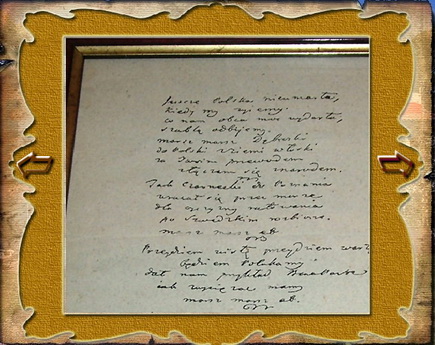 Jeszcze Polska nieumarła,
kiedy my żyiemy.
co nam obca moc wydarła,
szablą odbijemy.
marsz marsz Dąbrski
do Polski z ziemi włoski
za Twoim przewodem
złączem się z narodem.
Jak Czarnecki do Poznania
wracał się przez morze
dla oyczyzny ratowania
po szwedzkim rozbiorze.
marsz marsz etc.
Przeydziem wisłę przeydziem wartę
będziem Polakami
dał nam przykład Bonaparte
jak zwyciężać mamy
marsz marsz etc.